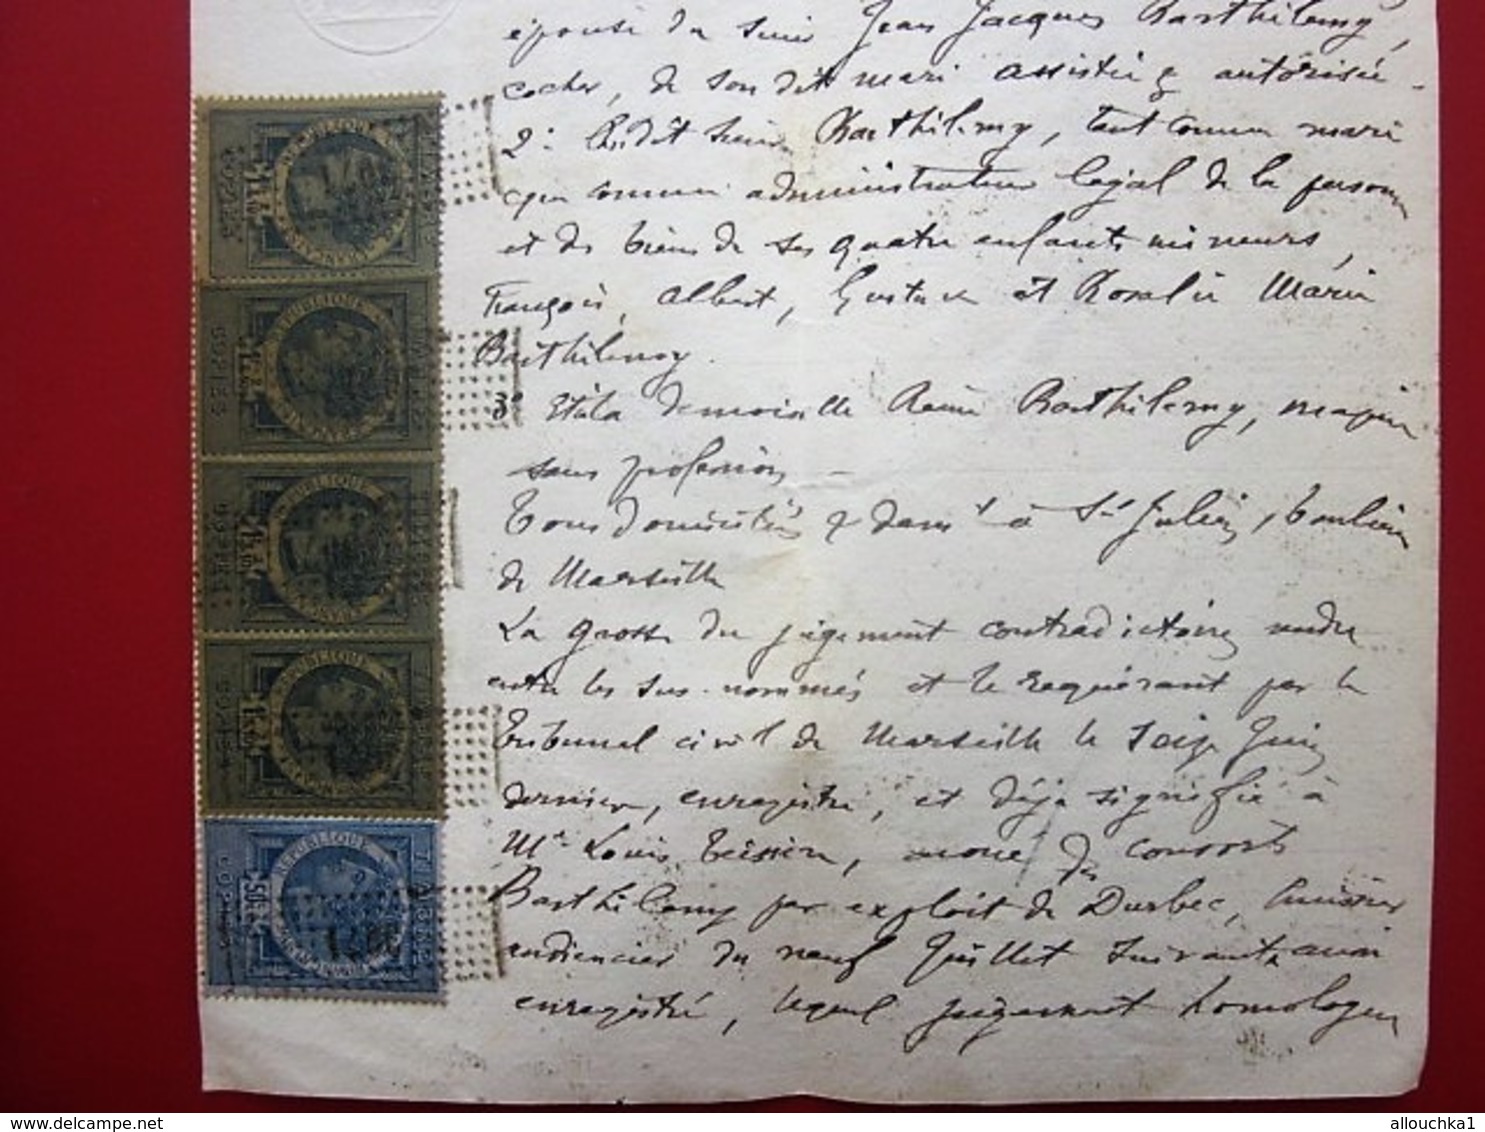 épouse du sieur Jean Jacques Barthélemy,
cocher, de son dit mari assistée & autorisée.
2° Ledit sieur Barthélemy, tant comme mari
que comme administrateur légal de la personne
et des biens de ses quatre enfants mineurs,
François, Albert, Gustave et Rosalie Marie
Barthélemy.
3° Et la demoiselle Barthélemy, majeure
sans profession
Tous domiciliés & demt à St Julien, banlieue
de Marseille
La grosse du jugement contradictoire rendu
entre les sus-nommés et le requérant par le
tribunal civil de Marseille le seize Juin
dernier, enregistré, et déjà signifié à
Me Louis Teissère, avoué des consorts
Barthélemy par exploit de Durbec, huissier
audiencier du neuf Juillet suivant, aussi
enregistré, lequel jugement homologue
RÉPUBLIQUE
FRANÇAISE
RÉPUBLIQUE
FRANÇAISE
RÉPUBLIQUE
FRANÇAISE
RÉPUBLIQUE
FRANÇAISE
RÉPUBLIQUE
FRANÇAISE
allouchka1
www.delcampe.net